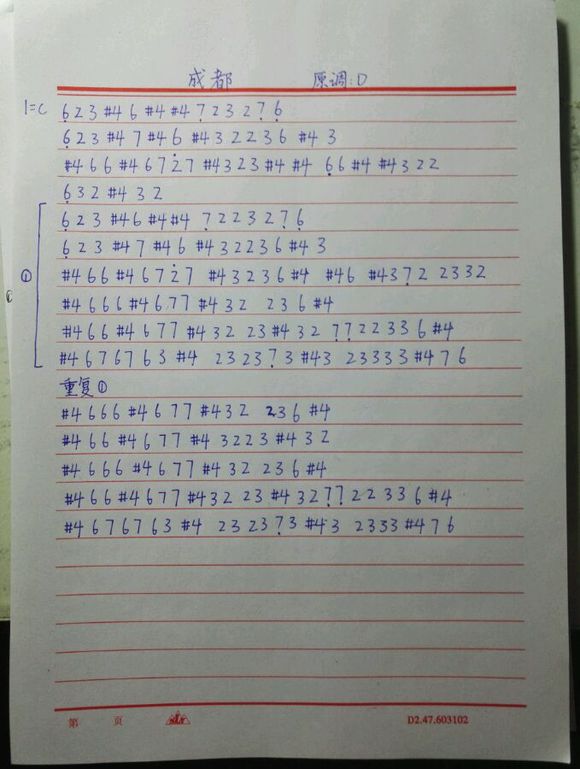 成都 原调:D
1=C 6̣ 2 3 #4 6 #4 #4 7̣ 2 3 2 7̣ 6̣
6̣ 2 3 #4 7 #4 6 #4 3 2 2 3 6 #4 3
#4 6 6 #4 6 7 2̇ 7 #4 3 2 3 #4 #4 6̣ 6 #4 #4 3 2 2
6̣ 3 2 #4 3 2
6̣ 2 3 #4 6 #4 #4 7̣ 2 2 3 2 7̣ 6̣
6̣ 2 3 #4 7 #4 6 #4 3 2 2 3 6 #4 3
① #4 6 6 #4 6 7 2̇ 7 #4 3 2 3 6 #4 #4 6 #4 3 7̣ 2 2 3 3 2
#4 6 6 6 #4 6 7 7 #4 3 2 2 3 6 #4
#4 6 6 #4 6 7 7 #4 3 2 2 3 #4 3 2 7̣ 7̣ 2 2 3 3 6 #4
#4 6 7 6 7 6 3 #4 2 3 2 3 7̣ 3 #4 3 2 3 3 3 3 #4 7 6
重复①
#4 6 6 6 #4 6 7 7 #4 3 2 2 3 6 #4
#4 6 6 #4 6 7 7 #4 3 2 2 3 #4 3 2
#4 6 6 6 #4 6 7 7 #4 3 2 2 3 6 #4
#4 6 6 #4 6 7 7 #4 3 2 2 3 #4 3 2 7̣ 7̣ 2 2 3 3 6 #4
#4 6 7 6 7 6 3 #4 2 3 2 3 7̣ 3 #4 3 2 3 3 3 #4 7 6
第 页 D2.47.603102